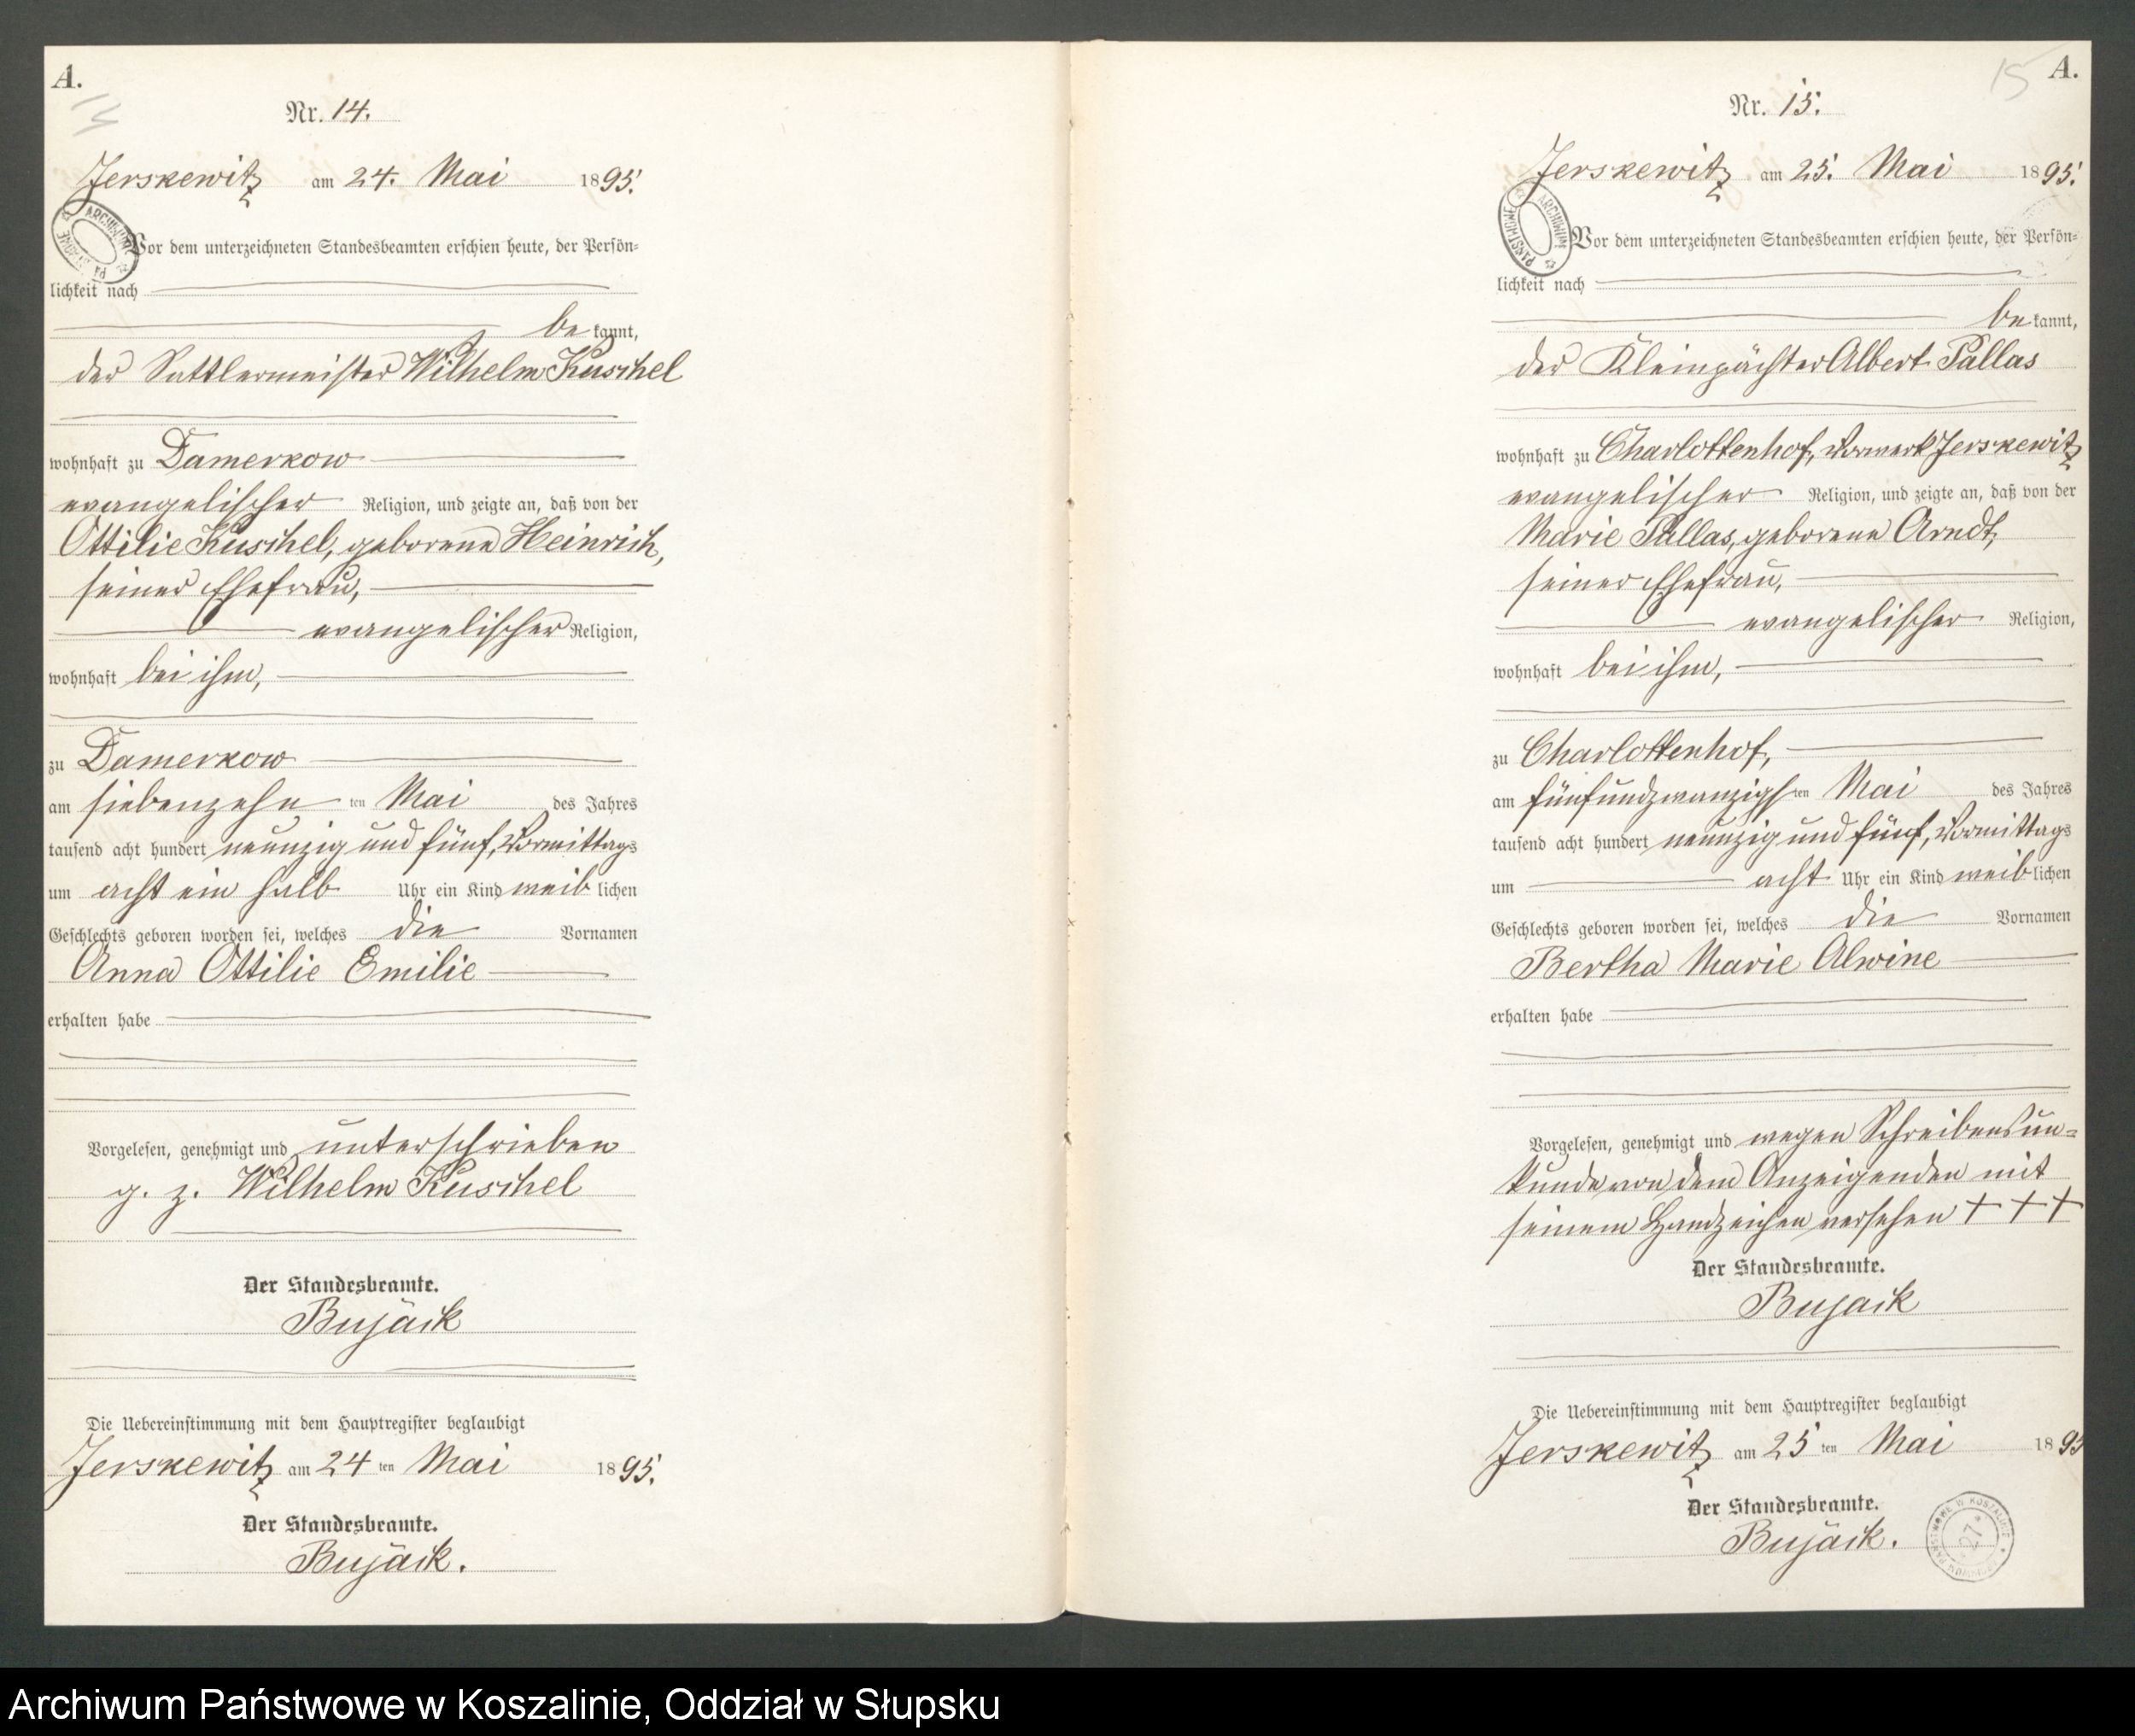 A.
Nr. 14.
Jerskewitz am 24. Mai 1895.
Vor dem unterzeichneten Standesbeamten erschien heute, der Persön-
lichkeit nach
bekannt,
der Sattlermeister Wilhelm Kuschel
wohnhaft zu Damerkow
evangelischer Religion, und zeigte an, daß von der
Ottilie Kuschel, geborene Heinrich,
seiner Ehefrau,
evangelischer Religion,
wohnhaft bei ihm,
zu Damerkow
am siebenzehn ten Mai des Jahres
tausend acht hundert neunzig und fünf, Vormittags
um acht ein halb Uhr ein Kind weiblichen
Geschlechts geboren worden sei, welches die Vornamen
Anna Ottilie Emilie
erhalten habe
Vorgelesen, genehmigt und unterschrieben
g. z. Wilhelm Kuschel
Der Standesbeamte.
Bujack
Die Uebereinstimmung mit dem Hauptregister beglaubigt
Jerskewitz am 24 ten Mai 1895.
Der Standesbeamte.
Bujack.
15 A.
Nr. 15.
Jerskewitz am 25. Mai 1895.
ARCHIWUM PAŃSTWOWE
Vor dem unterzeichneten Standesbeamten erschien heute, der Persön-
lichkeit nach
bekannt,
der Kleinpächter Albert Pallas
wohnhaft zu Charlottenhof, Vorwerk Jerskewitz
evangelischer Religion, und zeigte an, daß von der
Marie Pallas, geborene Arndt,
seiner Ehefrau,
evangelischer Religion,
wohnhaft bei ihm,
zu Charlottenhof,
am fünfundzwanzigsten Mai des Jahres
tausend acht hundert neunzig und fünf, Vormittags
um acht Uhr ein Kind weiblichen
Geschlechts geboren worden sei, welches die Vornamen
Bertha Marie Alwine
erhalten habe
Vorgelesen, genehmigt und wegen Schreibensun-
kunde von dem Anzeigenden mit
seinem Handzeichen versehen + + +
Der Standesbeamte.
Bujack
Die Uebereinstimmung mit dem Hauptregister beglaubigt
Jerskewitz am 25 ten Mai 1895
Der Standesbeamte.
Bujack.
27
Archiwum Państwowe w Koszalinie, Oddział w Słupsku